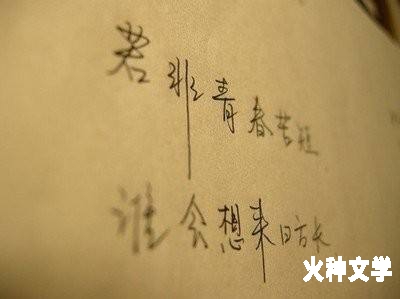 若非青春苦短
谁会想来日方长
火种文学